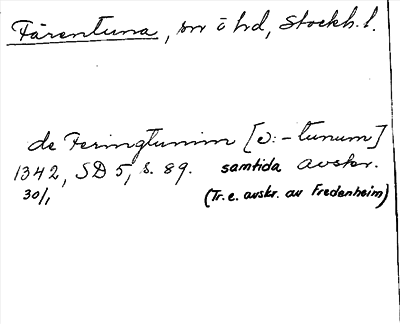 Färentuna, sn ö hd, Stockh. l.
de Feringtunim [ɔ: -tunum]
1342, SD 5, s. 89. samtida avskr.
30/1 (Tr. e. avskr. av Fredenheim)